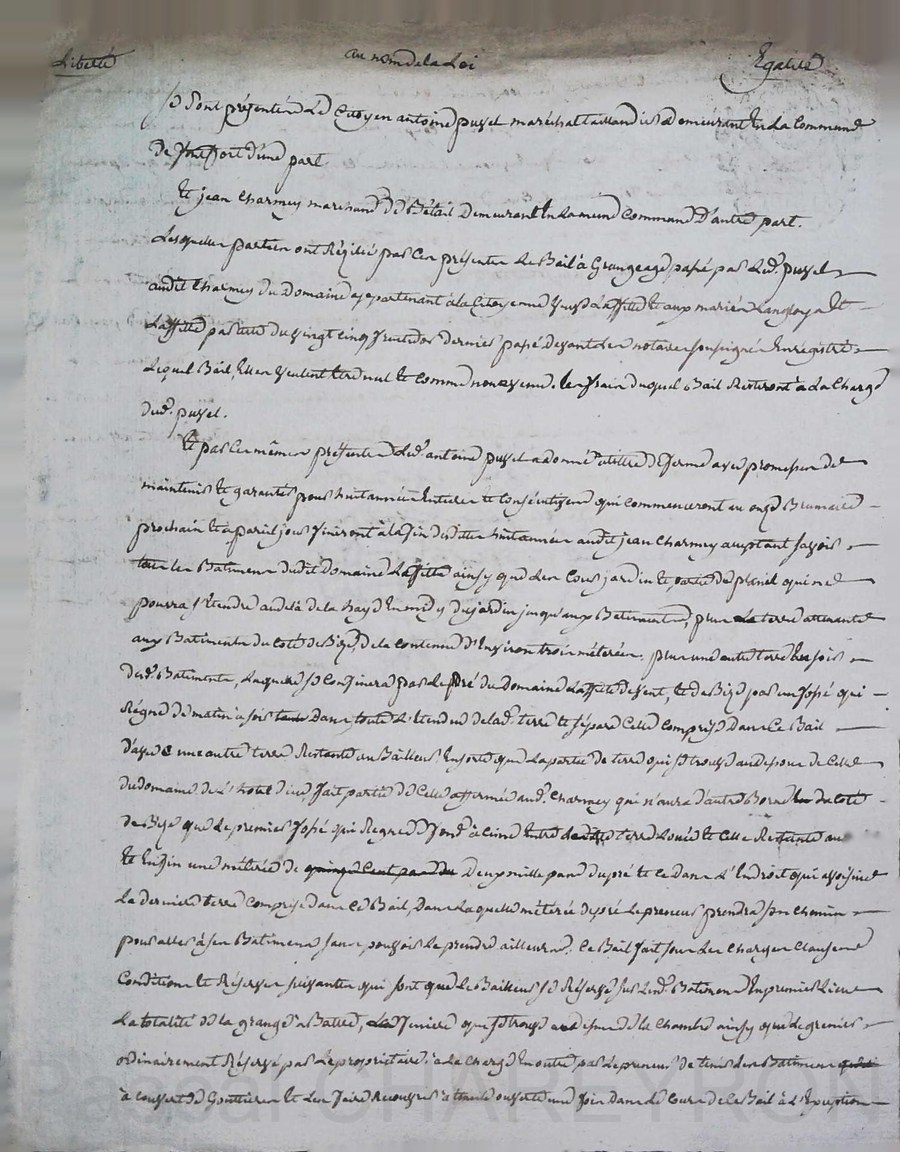 Liberté au nom de la Loi Egalité
Se sont présentés Le Citoyen antoine puzel maréchal taillandier demeurant En La Commune
De d'une part
Et jean Charmey marchand De Bétail Demeurant En La meme Commune D'autre part.
Lesquelles parties ont Résilié par Ces présentes Le Bail à Grangeage passé par Led. puzel
audit Charmey Du Domaine appartenant à la Citoyenne Laffitte Et aux mariés Langloya Et
Laffitte par acte du vingt cinq fructidor dernier passé Devant Les notaires soussigné Enregistré
Lequel Bail, Elles veulent Etre nul Et Comme non avenu. les frais duquel Bail Resteront à La Charge
dud. puzel.
Et par Ces mêmes présentes Led. antoine puzel a donné à titre De ferme avec promesse de
maintenir Et garantir pour huit années Entieres Et Consécutives qui commenceront au onze Brumaire
prochain Et à pareil jour finiront à la fin desdites huit années audit jean Charmey acceptant savoir
tous les Batimens dudit Domaine Laffitte ainsy que Les Cour jardin Et partie du qui ne
pourra s'étendre audelà de la haye En midy du jardin jusqu'aux Batiments, plus La terre attenante
aux Batiments du coté de Bize, de la contenue D'Environ trois méterées, plus une autre terre
desd. Batiments, Laquelle se Confinera par Le pré du Domaine Laffitte de vent, Et de Bize par un fossé qui
Règne De matin à soir Dans toute L'Etendue de lad. terre Et sépare Celle Comprise Dans Ce Bail
D'avec une autre terre Restante au Bailleur Ensorte que La partie de terre qui se trouve audessous de Celle
du domaine de L'hôtel dieu, fait partie De Celle affermée aud. Charmey qui n'aura d'autre Borne du coté
de Bize que Le premier fossé qui Regne De fond à Cime Entre terre Louée Et Celle Restante au
Et Enfin une méterée de quinze Cent pas du Deux mille pas du pré Et ce Dans L'Endroit qui avoisine
La derniere terre Comprise dans Ce Bail, Dans Laquelle méterée de pré Le preneur prendra son Chemin
pour aller à ses Batimens sans pouvoir Le prendre ailleurs. Ce Bail fait sous Les Charges Clauses
Conditions Et Réserves suivantes qui sont que Le Bailleur se Réserve sur Lesd. Batimens En premier Lieu
La totalité de la grange à Battre, qui se trouve au dessus de la Chambre ainsy que le grenier
ordinairement Réservé par Le propriétaire, à la Charge En outre par Le preneur de tenir Les Batimens
à couvert de Gouttieres Et Les faire Recouvrir à une fois Dans Le Cours de Ce Bail à L'Exception